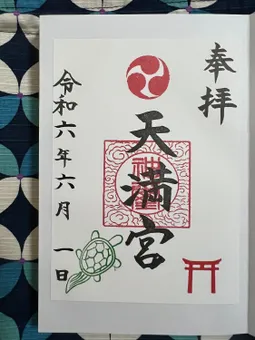 奉拝
天満宮
令和六年六月一日